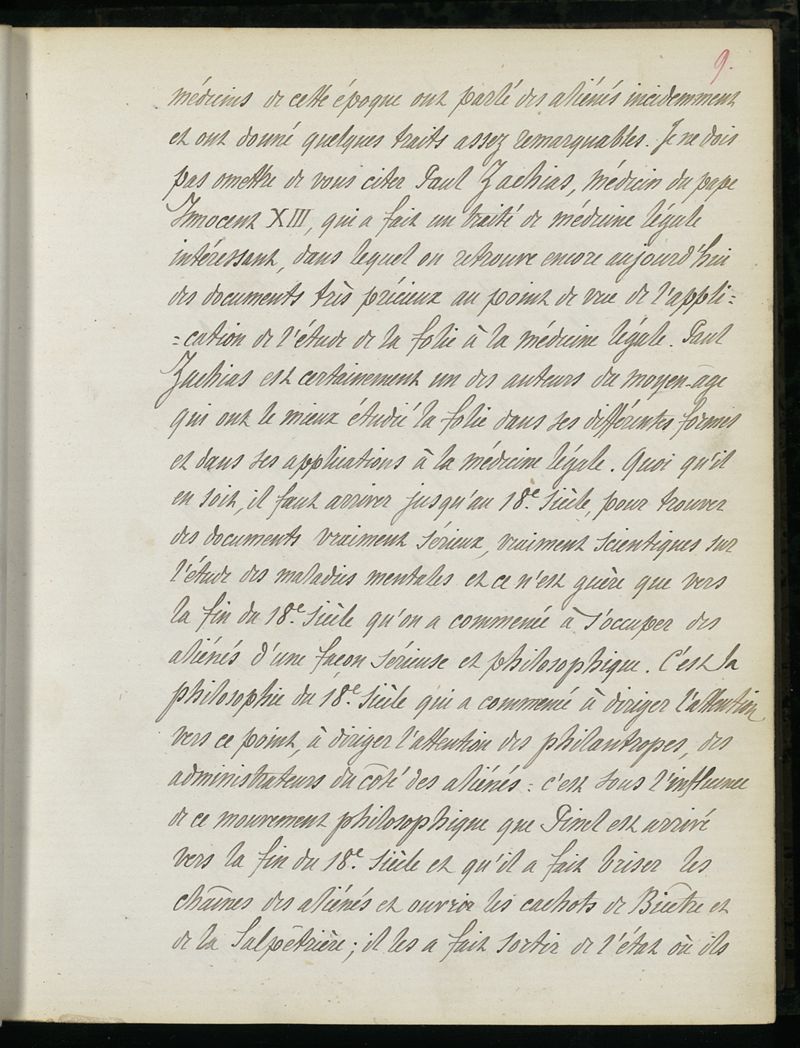 9.
médecins de cette époque ont parlé des aliénés incidemment
et ont donné quelques traits assez remarquables. Je ne dois
pas omettre de vous citer Paul Zachias, médecin du pape
Innocent XIII, qui a fait un traité de médecine légale
intéressant, dans lequel on retrouve encore aujourd'hui
des documents très précieux au point de vue de l'appli=
=cation de l'étude de la folie à la médecine légale. Paul
Zachias est certainement un des auteurs du moyen-âge
qui ont le mieux étudié la folie dans ses différentes formes
et dans ses applications à la médecine légale. Quoi qu'il
en soit, il faut arriver jusqu'au 18e. Siècle, pour trouver
des documents vraiment sérieux, vraiment scientiques sur
l'étude des maladies mentales et ce n'est guère que vers
la fin du 18e. Siècle qu'on a commencé à s'occuper des
aliénés d'une façon sérieuse et philosophique. C'est la
philosophie du 18e. Siècle qui a commencé à diriger l'attention
vers ce point, à diriger l'attention des philantropes, des
administrateurs du côté des aliénés : c'est sous l'influence
de ce mouvement philosophique que Pinel est arrivé
vers la fin du 18e. Siècle et qu'il a fait briser les
chaînes des aliénés et ouvrir les cachots de Bicêtre et
de la Salpêtrière ; il les a fait sortir de l'état où ils